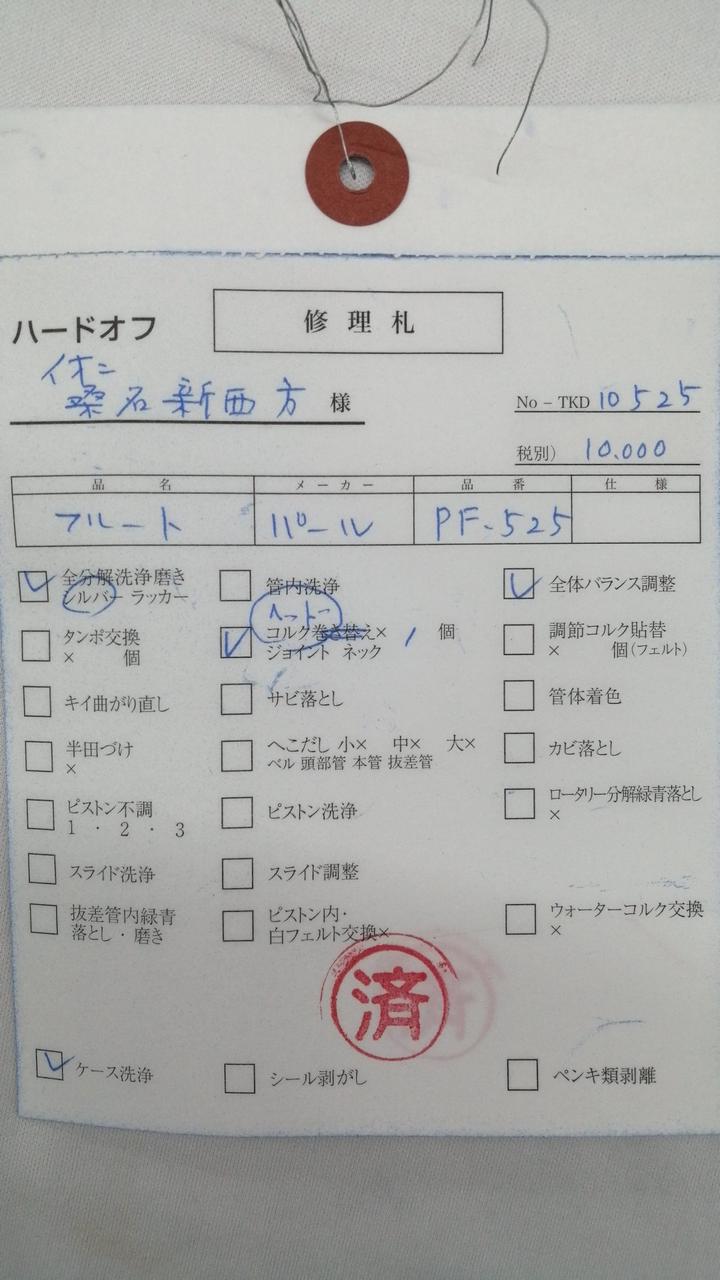 ハードオフ
修理札
イオニ
桑名新西方 様
No－TKD 10525
税別） 10.000
品名 メーカー 品番 仕様
フルート パール PF-525
全分解洗浄磨き
シルバー ラッカー
管内洗浄
全体バランス調整
タンポ交換
× 個
ヘッドー
コルク巻き替え× 1 個
ジョイント ネック
調節コルク貼替
× 個(フェルト)
キイ曲がり直し
サビ落とし
管体着色
半田づけ
×
へこだし 小× 中× 大×
ベル 頭部管 本管 抜差管
カビ落とし
ピストン不調
1 ・ 2 ・ 3
ピストン洗浄
ロータリー分解緑青落とし
×
スライド洗浄
スライド調整
抜差管内緑青
落とし・磨き
ピストン内・
白フェルト交換×
ウォーターコルク交換
×
済
ケース洗浄
シール剥がし
ペンキ類剥離